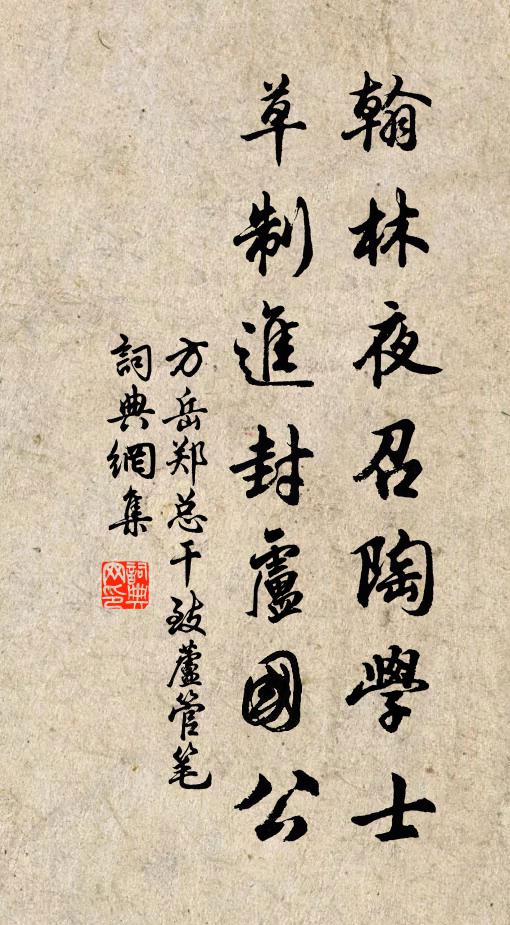 翰林夜召陶學士
草制進封盧國公
方岳郑总干致蘆管笔
詞典網集
詞典网印